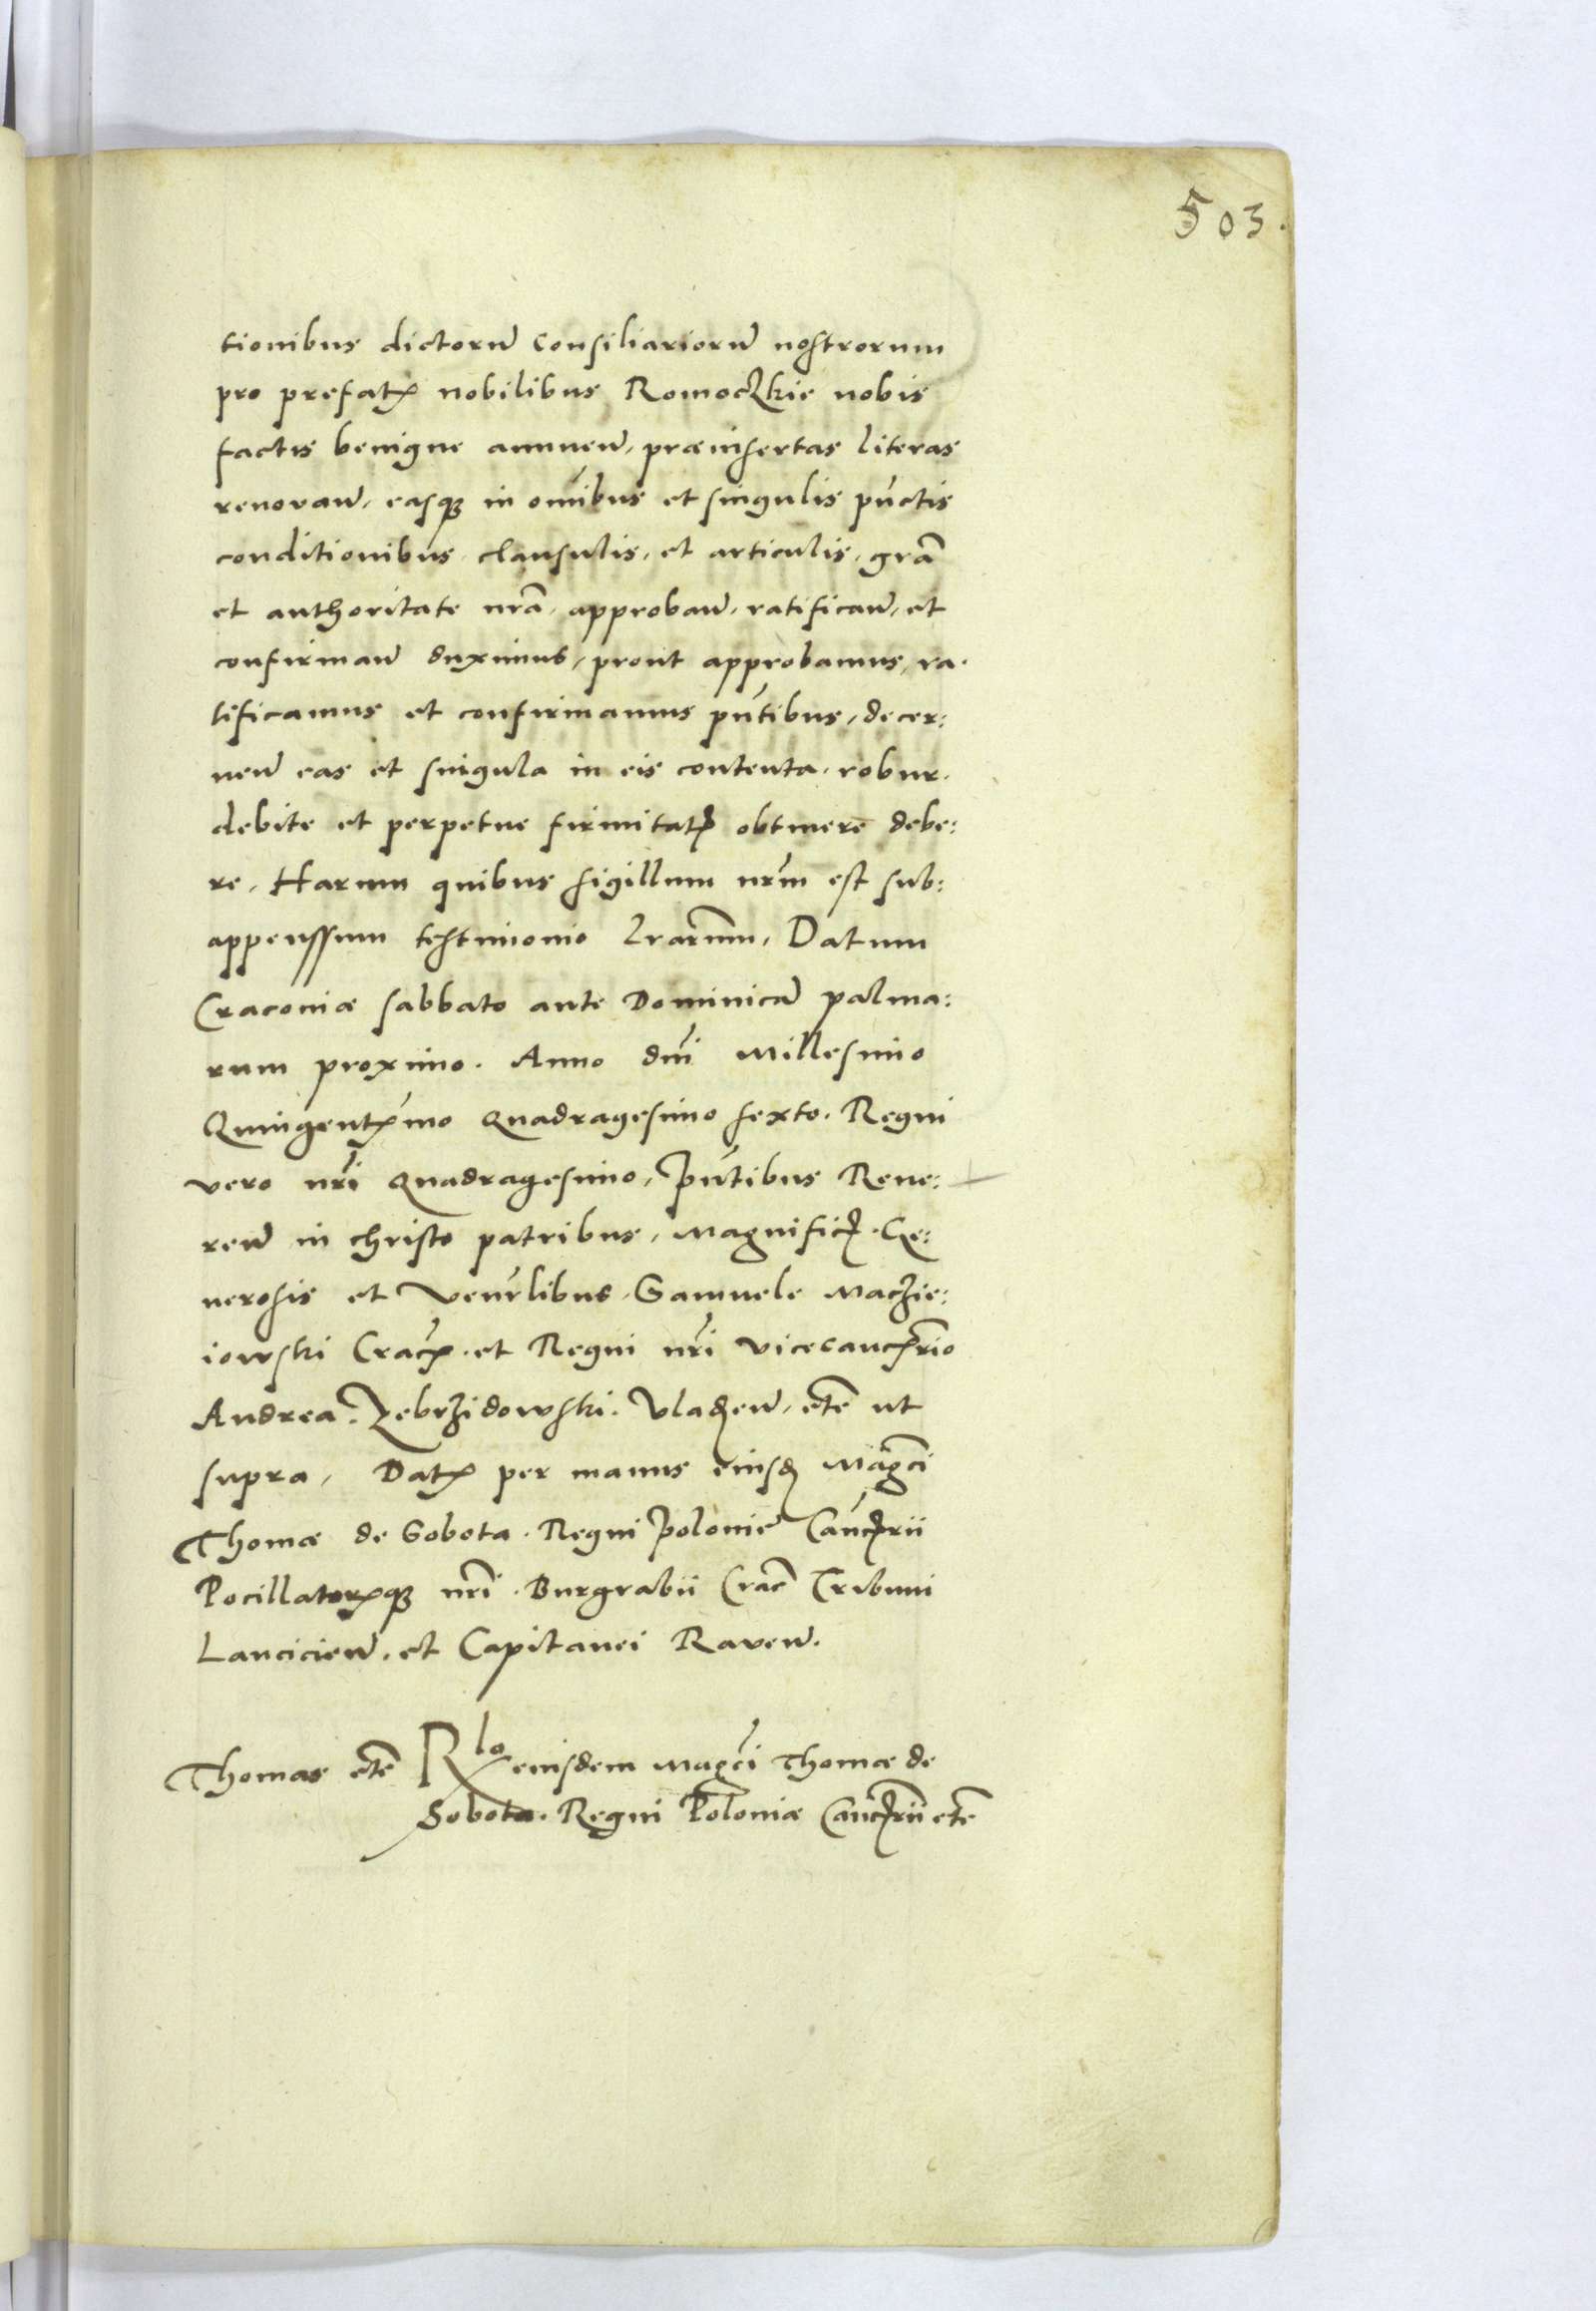 503.
tionibus dictorum Consiliariorum nostrorum
pro prefatꝭ nobilibus Romoczkie nobis
factis benigne annuen̄, præinsertas literas
renovan̄, easqꝫ in om̄ibus et singulis pūctis
conditionibus clausulis, et articulis, gr̄a
et authoritate nr̄a, approban̄, ratifican̄, et
confirman̄ duximus, prout approbamus, ra-
tificamus et confirmamus pn̄tibus, decer:
nen̄ eas et singula in eis contenta, robur
debite et perpetue firmitatꝭ obtinere debe:
re, Harum quibus sigillum nr̄m est sub:
appenssum testimonio l̄rarum, Datum
Cracoviæ sabbato ante Dominicā palma:
rum proximo. Anno dn̄i Millesimo
Quingentꝭimo Quadragesimo sexto. Regni
vero nr̄i Quadragesimo, Pn̄tibus Reve:
ren̄ in christo patribus, Magnificꝭ. Ge:
nerosis et Venēlibus, Samuele Maczie:
iowski Cracꝭ. et Regni nr̄i vicecancꝭrio
Andrea Zebrzidowski. Vladꝭen̄, etc̄ ut
supra, Datꝭ per manus eiusdꝭ Maḡci
Thomæ de Sobota. Regni Polonie Cancꝭrii
Pocillatorꝭqꝫ nr̄i. Burgrabii Crac̄ Tribuni
Lancicien̄. et Capitanei Raven̄.
Thomas etc̄ Rlo eiusdem Maḡci Thomæ de
Sobota. Regni Poloniæ Cancꝭrii etc̄